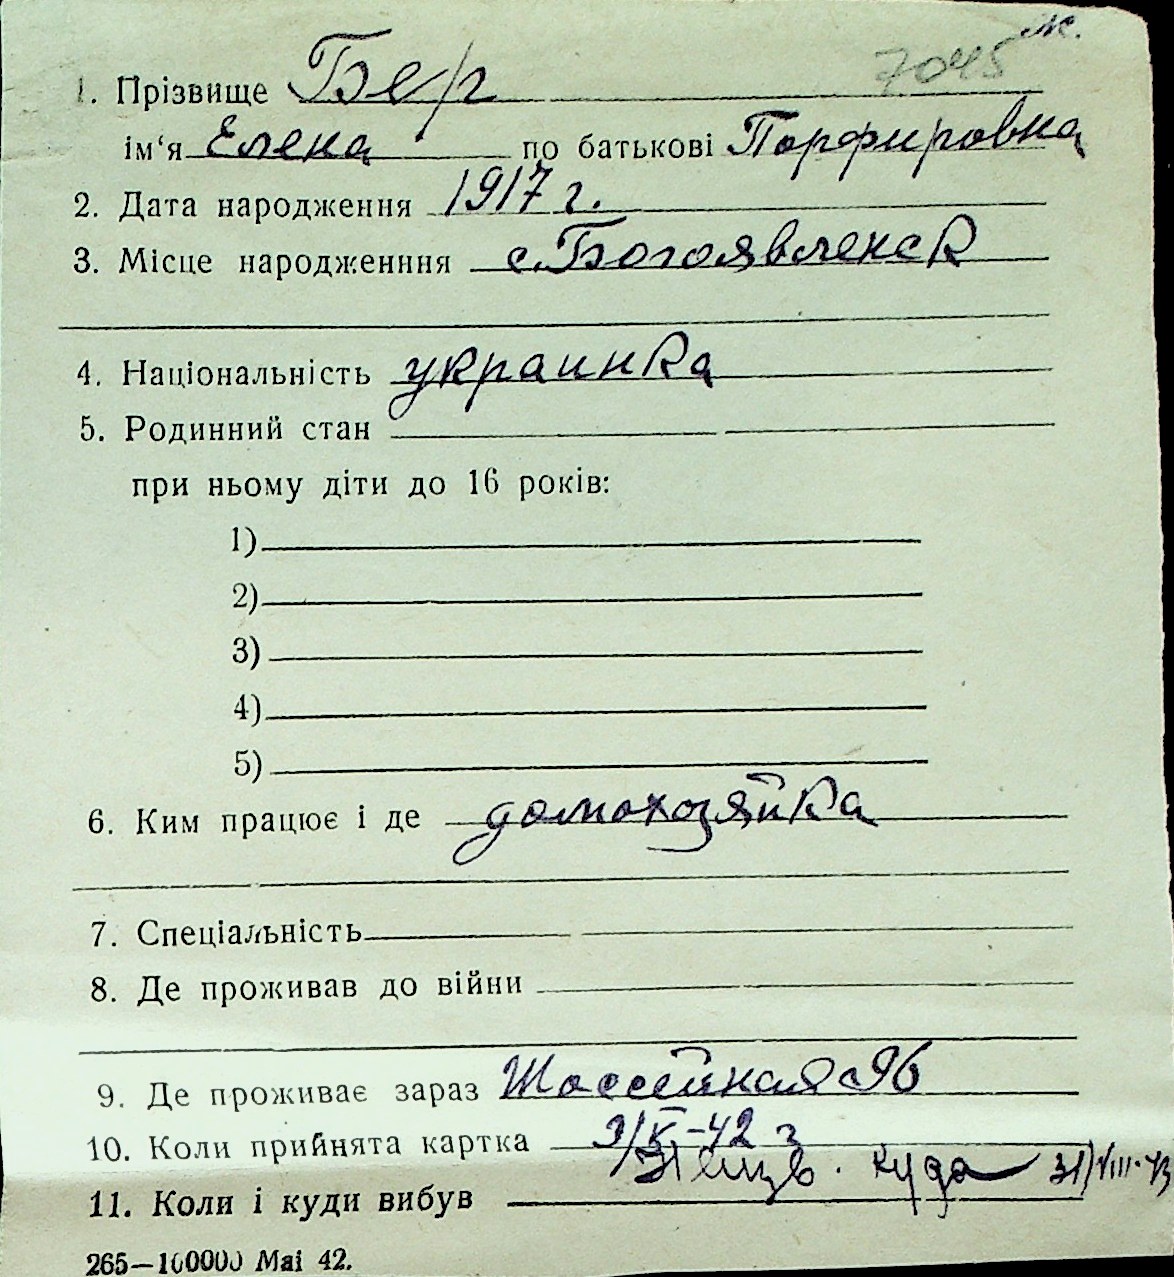 ж.
7045
1. Прізвище Бер
ім'я Елена по батькові Порфировна
2. Дата народження 1917 г.
3. Місце народженння с. Богоявленск
4. Національність украинка
5. Родинний стан
при ньому діти до 16 років:
1)
2)
3)
4)
5)
6. Ким працює і де домохозяйка
7. Спеціальність
8. Де проживав до війни
9. Де проживає зараз Шоссейная 96
10. Коли прийнята картка 3/X-42 г
куда 31/VIII-43
11. Коли і куди вибув
265—100000 Mai 42.